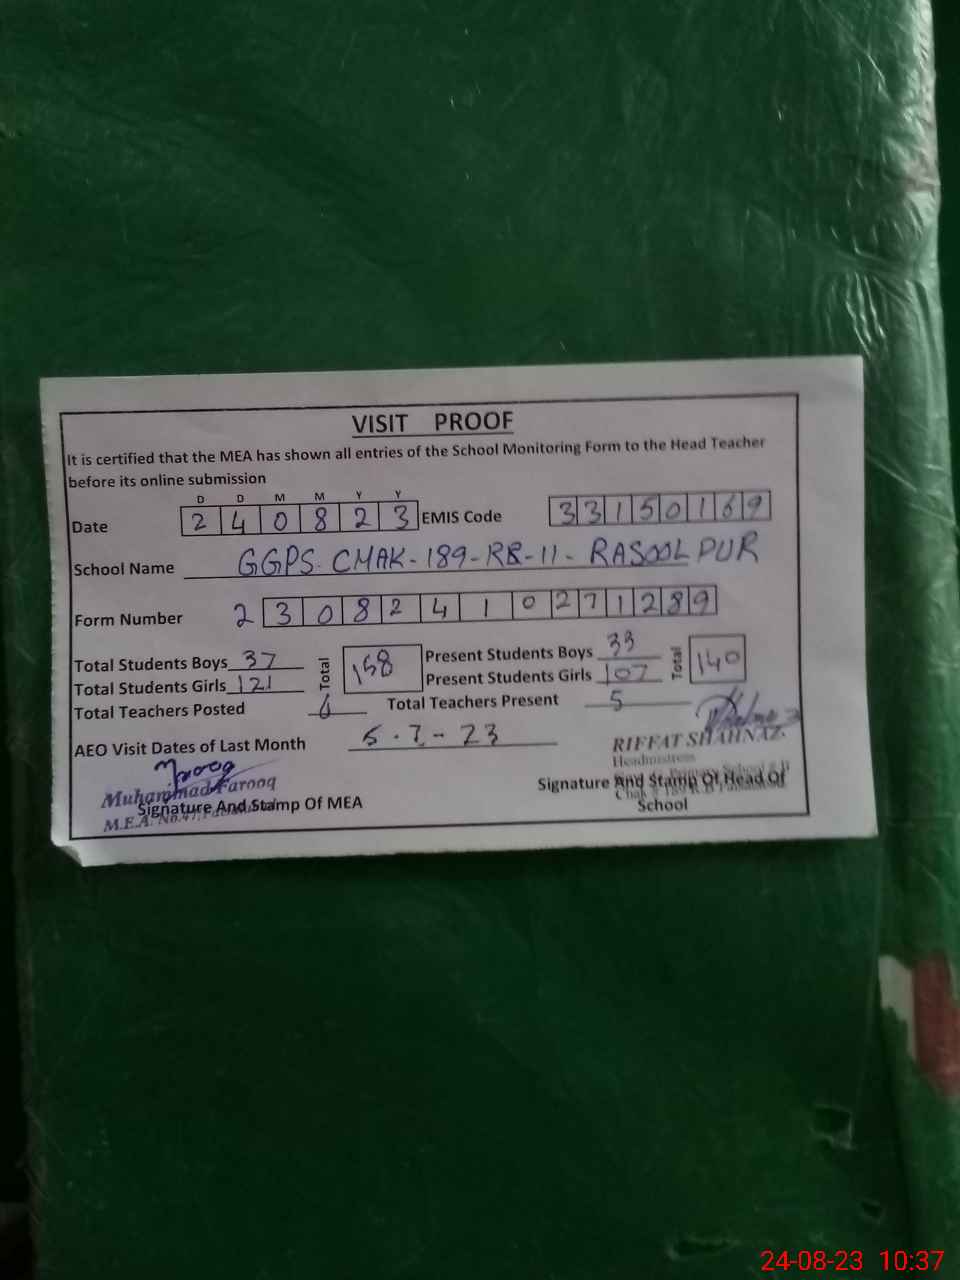 VISIT PROOF
It is certified that the MEA has shown all entries of the School Monitoring Form to the Head Teacher
before its online submission
D D M M Y Y
Date 2 4 0 8 2 3 EMIS Code 3 3 1 5 0 1 6 9
School Name GGPS. CMAK-189-RB-11- RASOOL PUR
Form Number 2 3 0 8 2 4 1 0 2 7 1 2 8 9
Total Students Boys 37 Total 158 Present Students Boys 33 Total 140
Total Students Girls 121 Present Students Girls 107
Total Teachers Posted 6 Total Teachers Present 5
AEO Visit Dates of Last Month 5.7-23
RIFFAT SHAHNAZ
Headmistress
Primary School
Chak # 189 R.B
Signature And Stamp Of Head Of
School
Muhammad Farooq
M.E.A. No.47,
Signature And Stamp Of MEA
24-08-23 10:37